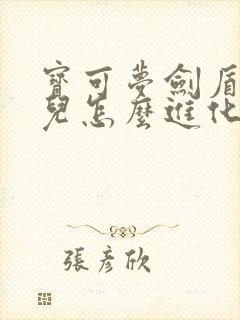 寶可夢劍盾
兒怎麼進化
張彥欣